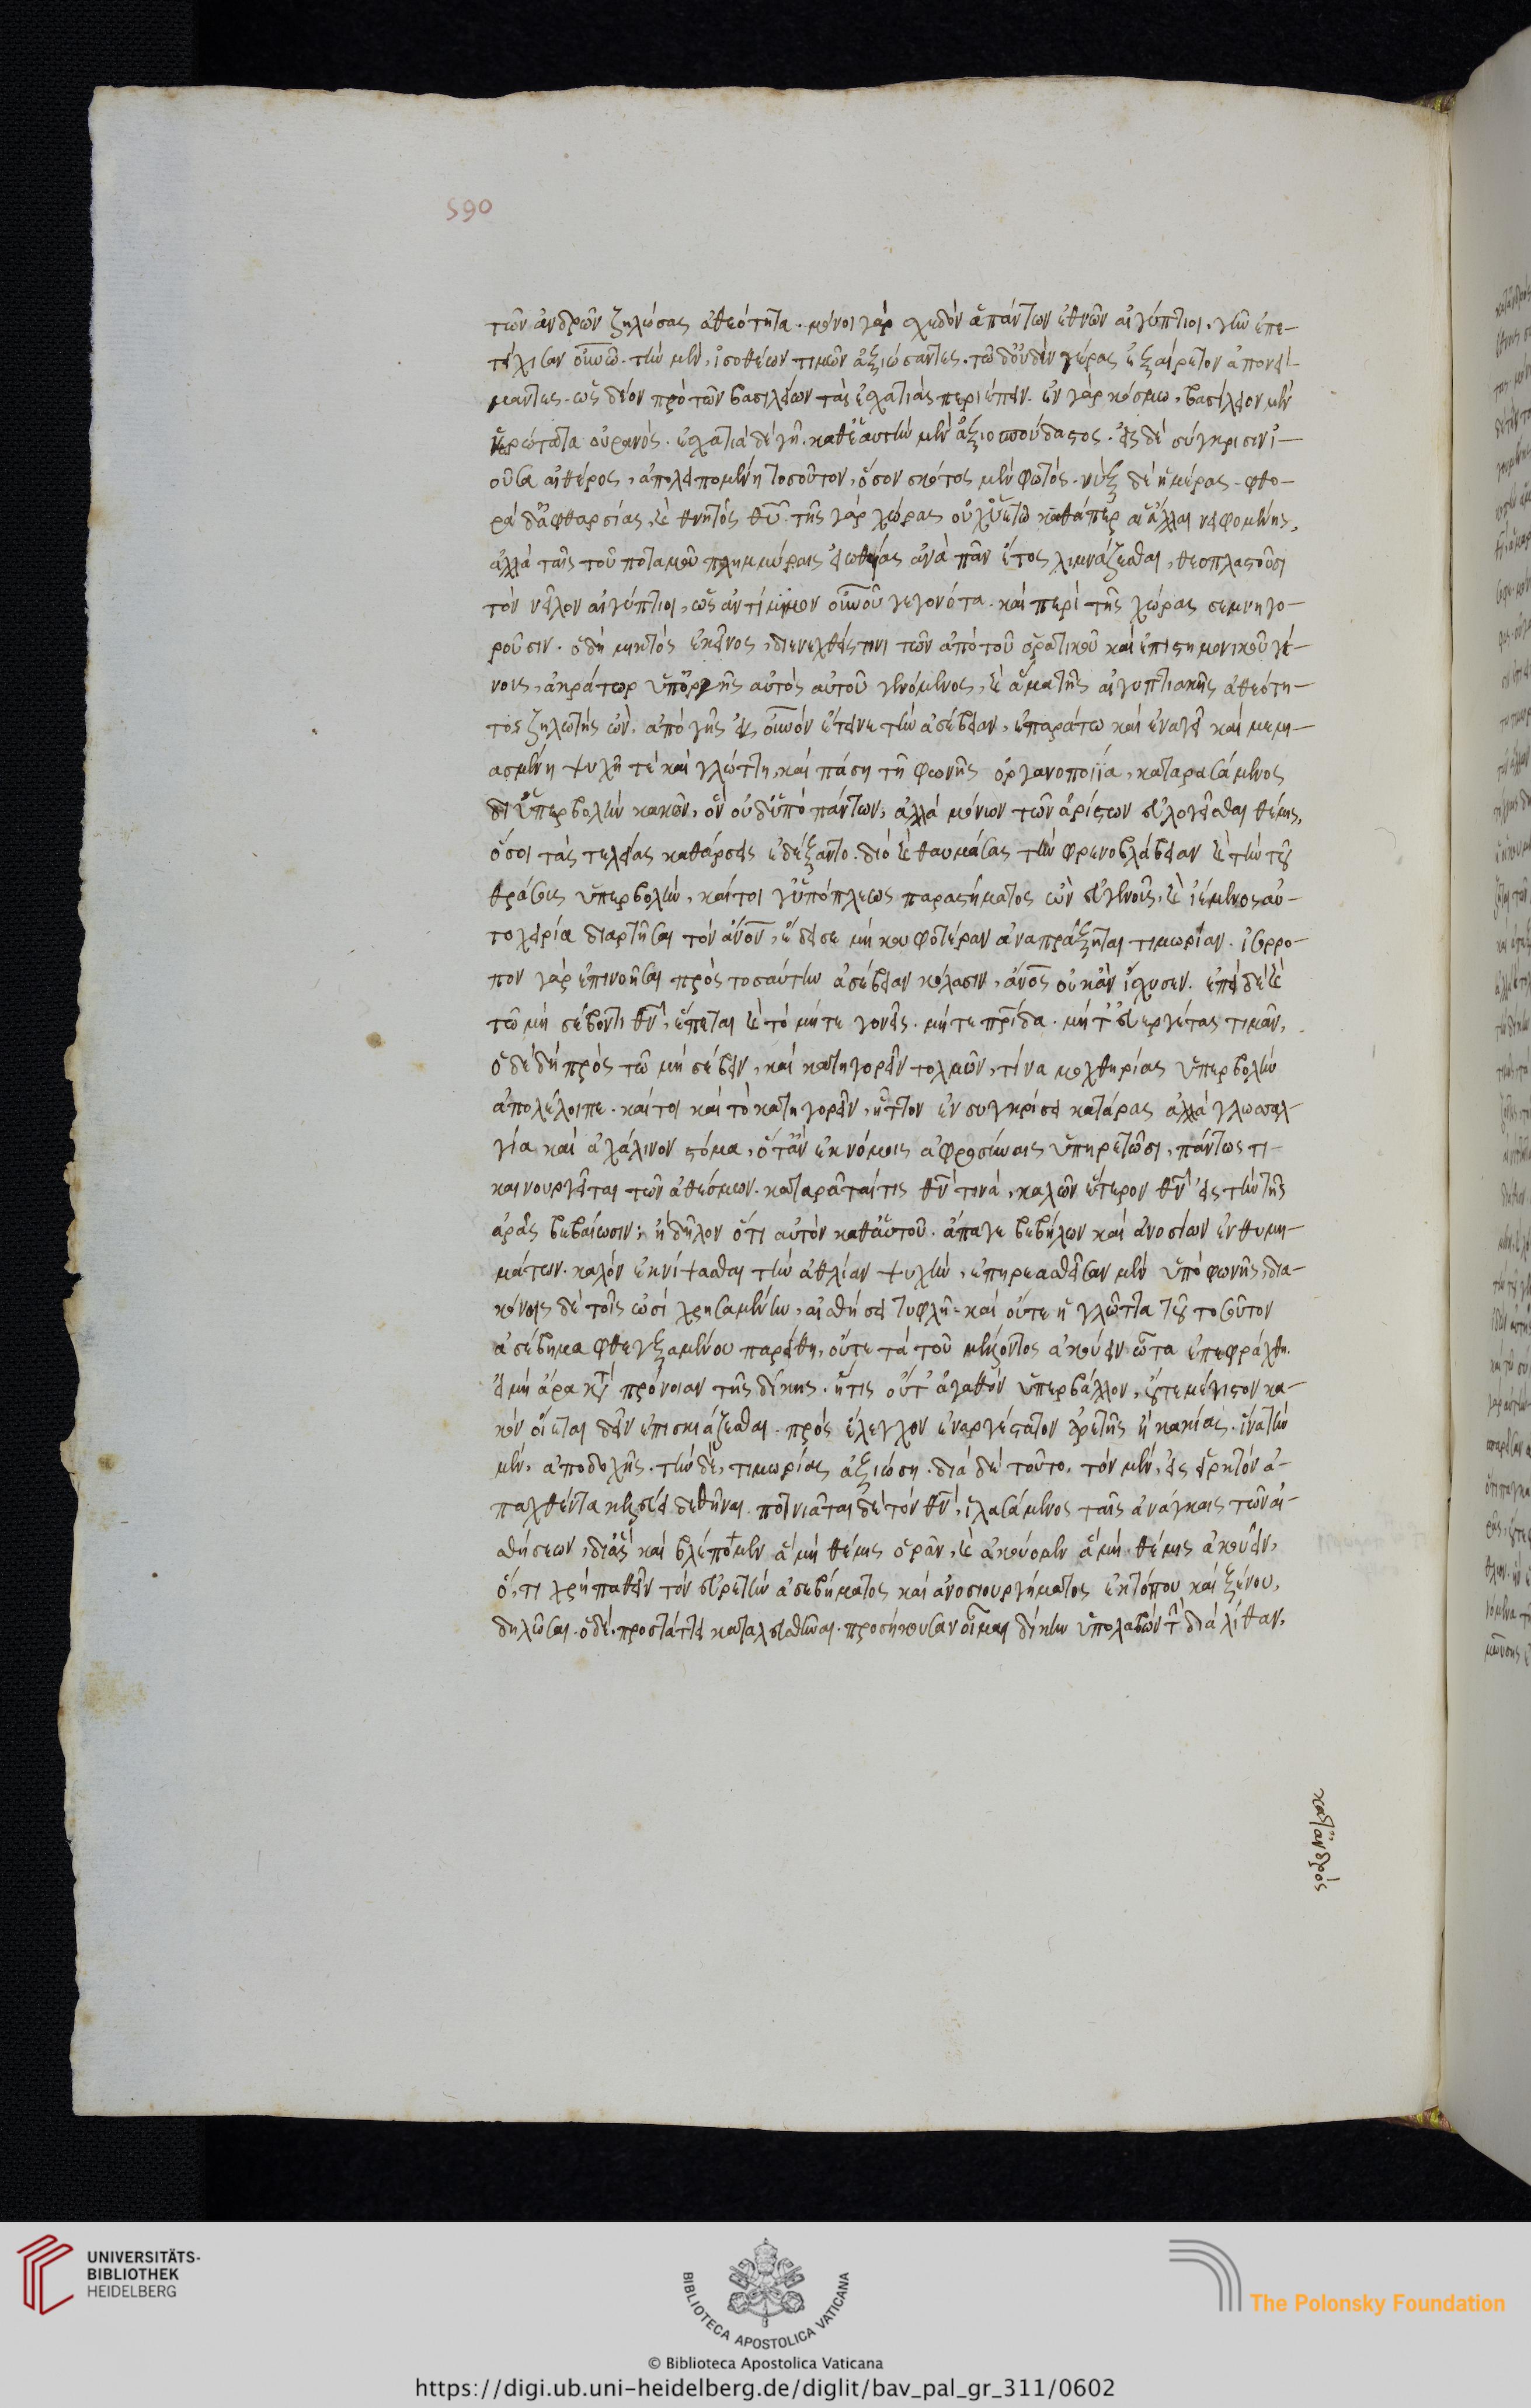 590
τῶν ἀνδρῶν ζηλώσας ἀθεότητα. μόνοι γὰρ σχεδὸν ἁπάντων ἐθνῶν αἰγύπτιοι, γῆν ἐπε-
τείχισαν οὐνῶ. τὴν μὲν, ἰσοθέων τιμῶν ἀξιώσαντες. τῶ δ' οὐδὲν γέρας ἐξαίρετον ἀπονεί-
μαντες. ὡς δέον πρὸ τῶν βασιλείων τὰς ἐσχατιὰς περιέπειν. ἐν γὰρ κόσμω, βασίλειον μὲν
ἱερώτατα οὐρανός. ἐσχατιὰ δὲ γῆ. καθ' ἑαυτὴν μὲν ἀξιοσπούδαστος. εἰς δὲ σύγκρισιν ἰ-
οῦσα αἰθέρος, ἀπολειπομένη τοσοῦτον, ὅσον σκότος μὲν φωτός. νὺξ δὲ ἡμέρας. φθο-
ρὰ δ' ἀφθαρσίας, καὶ θνητὸς θυ. τῆς γὰρ χώρας οὐχ ὑετῶ καθάπερ αἱ ἄλλαι νειφομένης,
ἀλλὰ ταῖς τοῦ ποταμοῦ πλημμύραις εἰωθυίας ἀνὰ πᾶν ἔτος λιμνάζεσθαι, θεοπλαστοῦσι
τὸν νεῖλον αἰγύπτιοι, ὡς ἀντίμιμον οὐνοῦ γεγονότα. καὶ περὶ τῆς χώρας σεμνηγο-
ροῦσιν. ὁ δὴ μικτὸς ἐκεῖνος, διενεχθείς τινι τῶν ἀπὸ τοῦ ὁρατικοῦ καὶ ἐπιστημονικοῦ γέ-
νους, ἀκράτωρ ὑπ' ὀργῆς αὐτὸς αὑτοῦ γενόμενος, καὶ ἅμα τῆς αἰγυπτιακῆς ἀθεότη-
τος ζηλωτὴς ὢν, ἀπὸ γῆς εἰς οὐνὸν ἔτεινε τὴν ἀσέβειαν, ἐπαράτω καὶ ἐναγεῖ καὶ μεμι-
ασμένη ψυχῆ τὲ καὶ γλώττη, καὶ πάση τῆ φωνῆς ὀργανοποιΐα, καταρασάμενος
δι' ὑπερβολὴν κακῶν, ὃν οὐδ' ὑπὸ πάντων, ἀλλὰ μόνων τῶν ἀρίστων εὐλογεῖσθαι θέμις,
ὅσοι τὰς τελείας καθάρσεις ἐδέξαντο. διὸ καὶ θαυμάσας τὴν φρενοβλάβειαν καὶ τὴν τοῦ
θράσους ὑπερβολὴν, καίτοι γ' ὑπόπλεως παραστήματος ὢν εὐγενοῦς, καὶ ἱέμενος αὐ-
τοχειρία διαρτῆσαι τὸν ἄνον, ἔδεισε μὴ κουφοτέραν ἀναπράξηται τιμωρίαν. ἰσόρρο-
πον γὰρ ἐπινοῆσαι πρὸς τοσαύτην ἀσέβειαν κόλασιν, ἄνος οὐκ ἂν ἴσχυσεν. ἐπεὶ δὲ καὶ
τῶ μὴ σέβοντι θν, ἕπεται καὶ τὸ μήτε γονεῖς. μήτε πρίδα. μήτ' εὐεργέτας τιμᾶν,
ὁ δὲ δὴ πρὸς τῶ μὴ σέβειν, καὶ κατηγορεῖν τολμῶν, τίνα μοχθηρίας ὑπερβολὴν
ἀπολέλοιπε. καίτοι καὶ τὸ κατηγορεῖν, ἧττον ἐν συγκρίσει κατάρας ἀλλὰ γλωσσαλ-
γία καὶ ἀχάλινον στόμα, ὅταν ἐκνόμοις ἀφροσύναις ὑπηρετῶσι, πάντως τι
καινουργεῖται τῶν ἀθέσμων. καταρᾶται τις θν τινὰ, καλῶν ἕτερον θν εἰς τὴν τῆς
ἀρᾶς βεβαίωσιν; ἢ δῆλον ὅτι αὐτὸν καθ' αὑτοῦ. ἄπαγε βεβήλων καὶ ἀνοσίων ἐνθυμη-
μάτων. καλὸν ἐκνίψασθαι τὴν ἀθλίαν ψυχὴν, ἐπηρεασθεῖσαν μὲν ὑπὸ φωνῆς, δια-
κόνοις δὲ τοῖς ὠσὶ χρησαμένην, αἰσθήσει τυφλῆ. καὶ οὔτε ἡ γλῶττα τοῦ τοσοῦτον
ἀσέβημα φθεγξαμένου παρείθη, οὔτε τὰ τοῦ μέλλοντος ἀκούειν ὦτα ἐπεφράχθη.
εἰ μὴ ἄρα κατὰ πρόνοιαν τῆς δίκης. ἥτις οὔτ' ἀγαθὸν ὑπερβάλλον, οὔτε μέγιστον κα-
κὸν οἴεται δεῖν ἐπισκιάζεσθαι. πρὸς ἔλεγχον ἐναργέστατον ἀρετῆς ἢ κακίας. ἵνα τὴν
μὲν, ἀποδοχῆς. τὴν δὲ, τιμωρίας ἀξιώση. διὰ δὲ τοῦτο, τὸν μὲν, εἰς εἱρκτὸν ἀ-
παχθέντα κελεύει δεθῆναι. ποτνιᾶται δὲ τὸν θν, ἱλασάμενος ταῖς ἀνάγκαις τῶν αἰ-
σθήσεων, δι' ἃς καὶ βλέπομεν ἃ μὴ θέμις ὁρᾶν, καὶ ἀκούομεν ἃ μὴ θέμις ἀκούειν,
ὅ, τι χρὴ παθεῖν τὸν εὑρετὴν ἀσεβήματος καὶ ἀνοσιουργήματος ἐκτόπου καὶ ξένου,
δηλῶσαι. ὁ δὲ, προστάττει καταλευσθῆναι. προσήκουσαν οἶμαι δίκην ὑπολαβὼν τὴν διὰ λίθων,
κατ' ἀνδρὸς
UNIVERSITÄTS-
BIBLIOTHEK
HEIDELBERG
BIBLIOTECA APOSTOLICA VATICANA
The Polonsky Foundation
© Biblioteca Apostolica Vaticana
https://digi.ub.uni-heidelberg.de/diglit/bav_pal_gr_311/0602